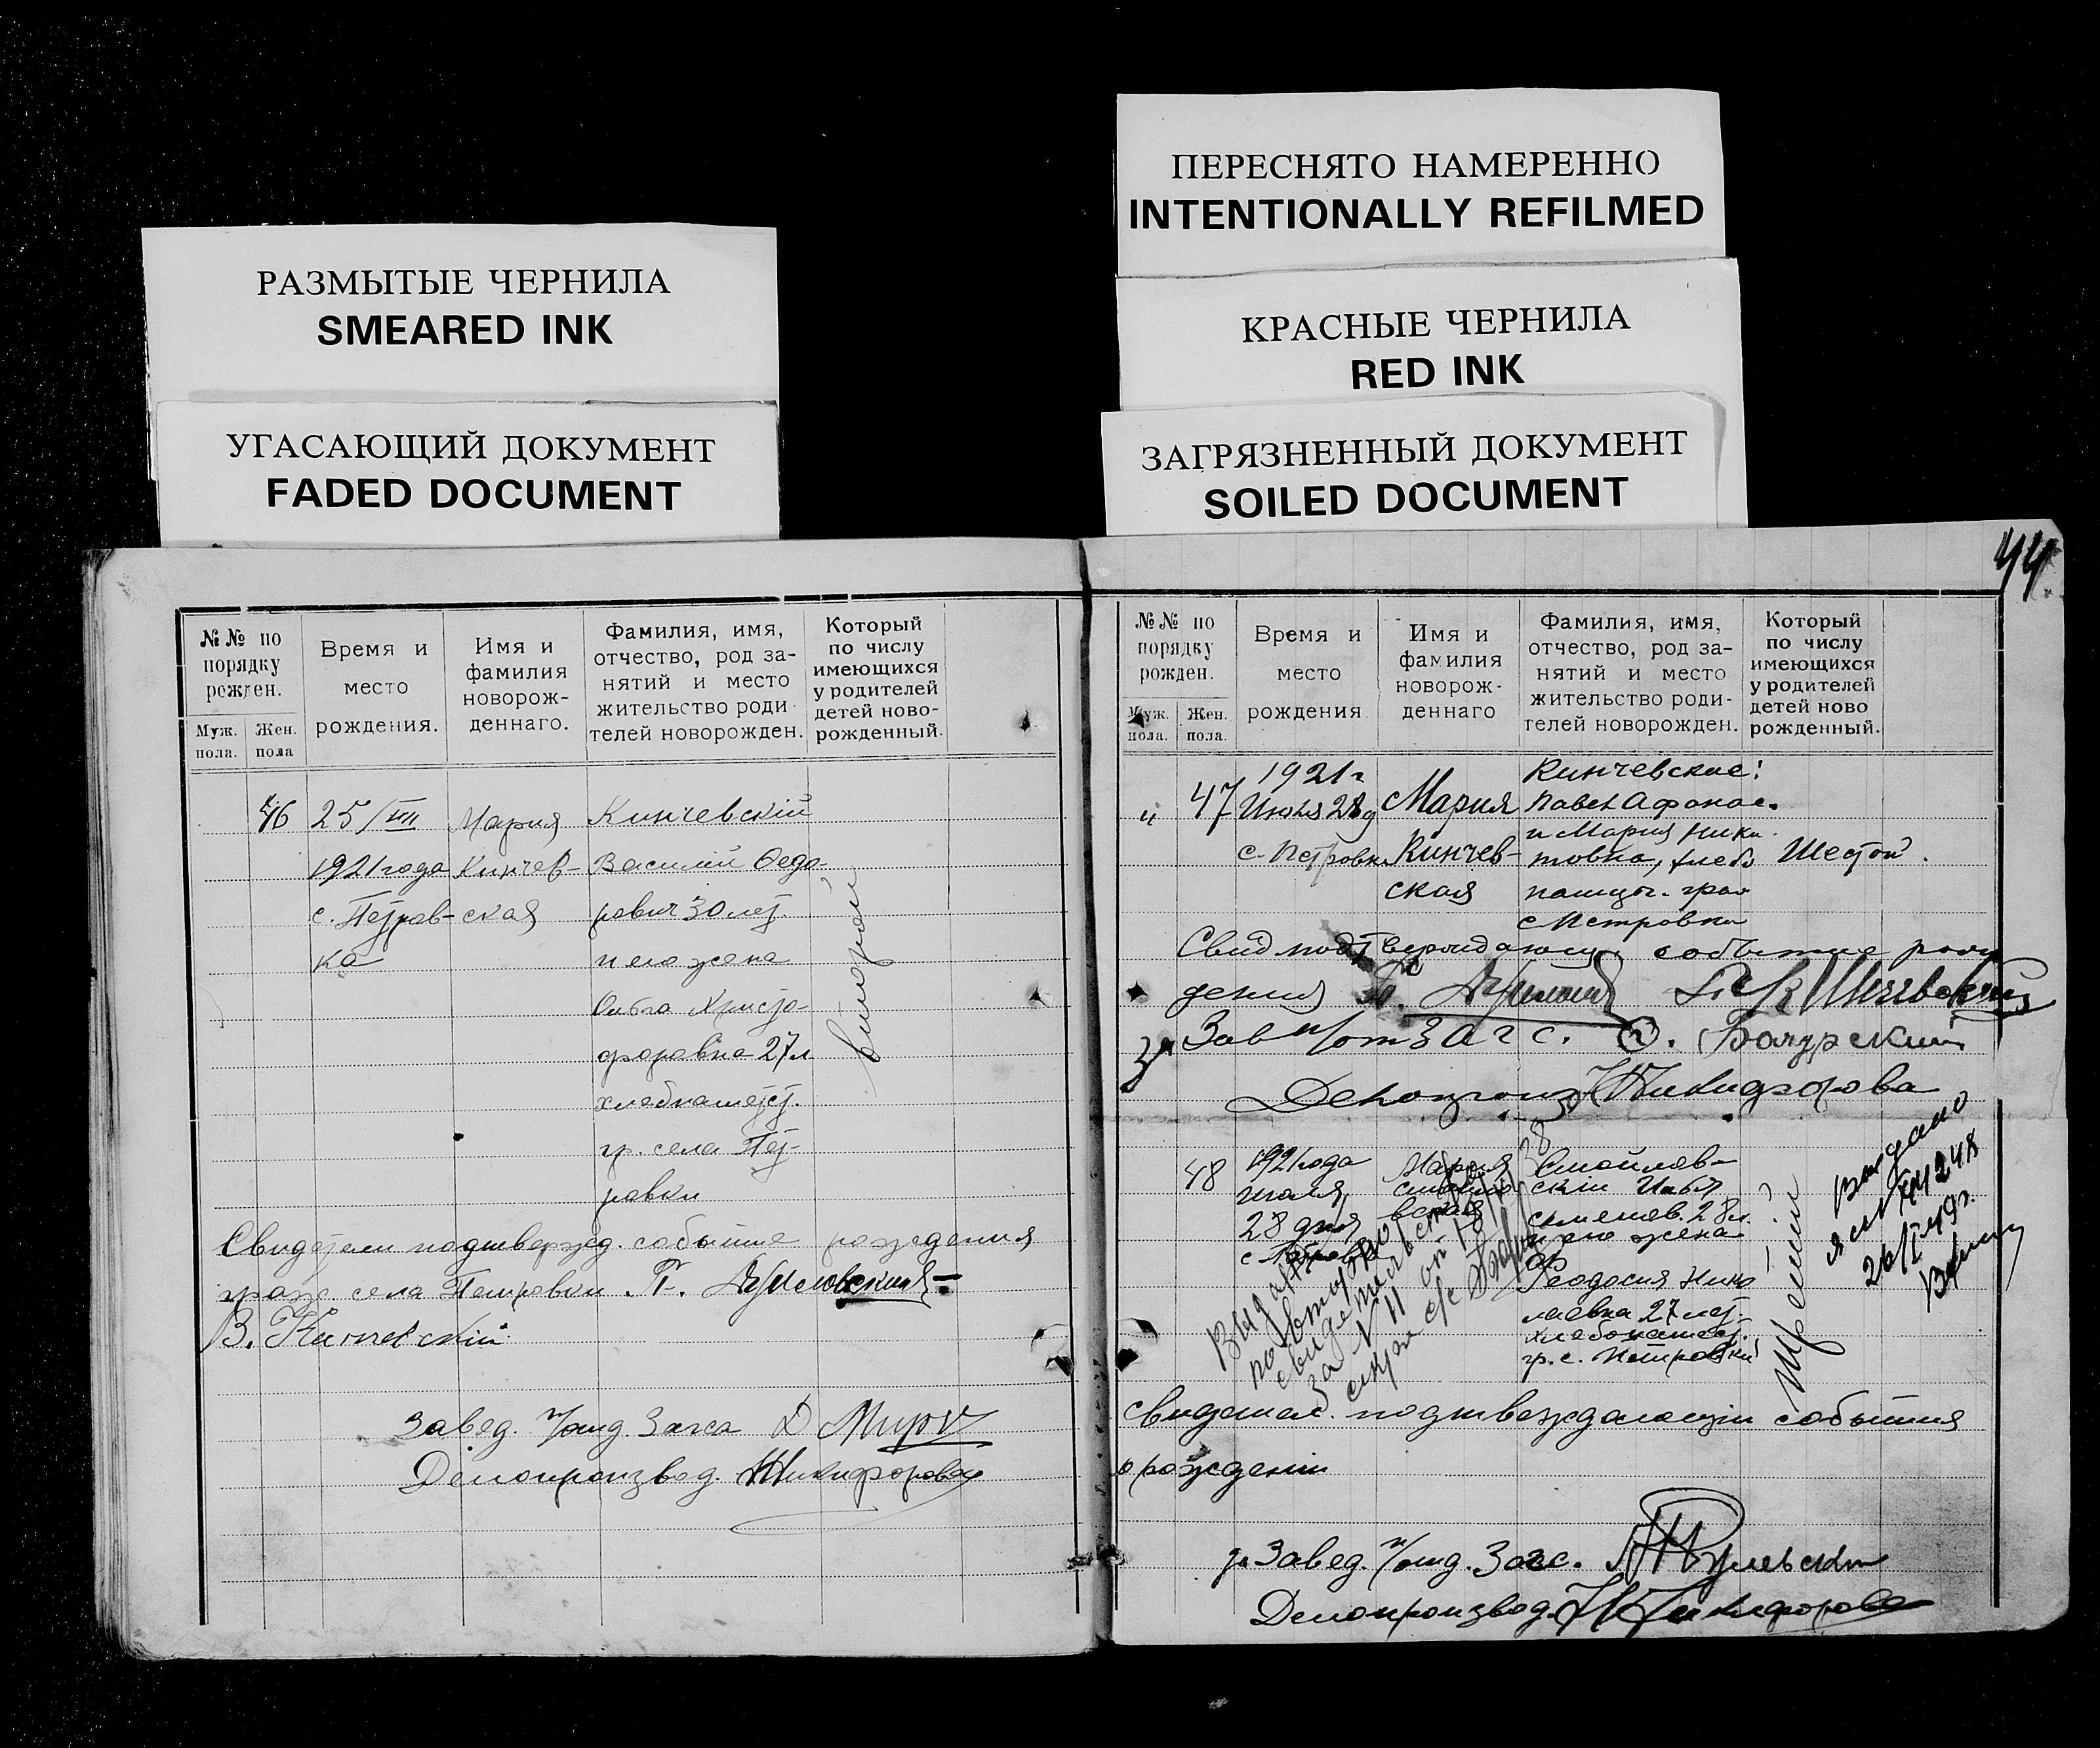 РАЗМЫТЫЕ ЧЕРНИЛА
SMEARED INK
УГАСАЮЩИЙ ДОКУМЕНТ
FADED DOCUMENT
ПЕРЕСНЯТО НАМЕРЕННО
INTENTIONALLY REFILMED
КРАСНЫЕ ЧЕРНИЛА
RED INK
ЗАГРЯЗНЕННЫЙ ДОКУМЕНТ
SOILED DOCUMENT
№№ по
порядку
рожден.
Муж.
пола.
Жен.
пола
Время и
место
рождения.
Имя и
фамилия
новорож-
деннаго.
Фамилия, имя,
отчество, род за-
нятий и место
жительство роди
телей новорожден.
Который
по числу
имеющихся
у родителей
детей ново-
рожденный.
46
25/VII
1921 года
с. Петров-
ка
Мария
Кинчев-
ская
Кинчевскій
Василий Федо-
рович 30 лет
и его жена
Ольга Христо-
форовна 27 л
хлебопашест.
гр. села Пет-
ровки
второй
Свидетели подтвержд. событие рождения
гражд. села Петровки П.
В. Кинчевский
Завед. п/отд Загса Д
Делопроизвод. Никифорова
44
№№ по
порядку
рожден.
Муж.
пола.
Жен.
пола.
Время и
место
рождения
Имя и
фамилия
новорож-
деннаго
Фамилия, имя,
отчество, род за-
нятий и место
жительство роди-
телей новорожден.
Который
по числу
имеющихся
у родителей
детей ново
рожденный.
"
47
1921 г
Июля 28 д
с. Петровка
Мария
Кинчев-
ская
Кинчевские:
Павел Афонас.
и Мария Ники-
товна, хлебо
пашцы. граж
с Петровки
Шестой.
Свид подтверждающ. событие рож
дения
Зав п/от ЗАГС.
Никифорова
48
1921 года
июля
28 дня
с. Петровка
Мария
Смойлов-
скій Илья
семенов. 28 л.
и его жена
Феодосия Нико
лаевна 27 лет
хлебопашест.
гр. с. Петровки
Выдано
повторное
свидетельство
за N 11 от
выдано
26/I 49 г.
свидетел. подтвеждающіи события
о рождении
Завед. п/отд. Загс.
Делопроизвод. Никифорова